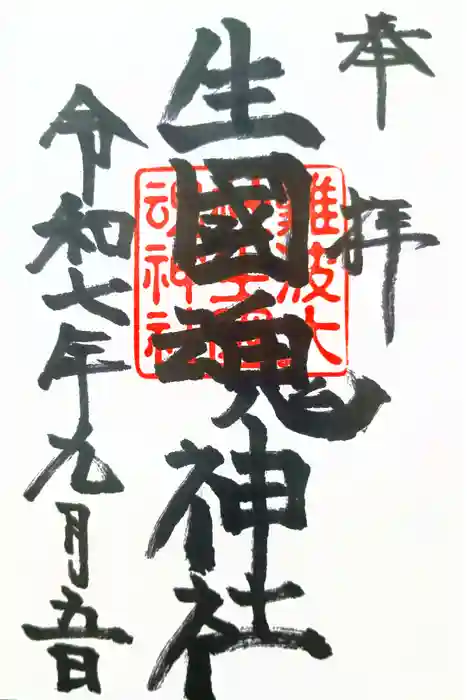 奉拝
生國魂神社
難波大
社生國
魂神社
令和七年九月五日